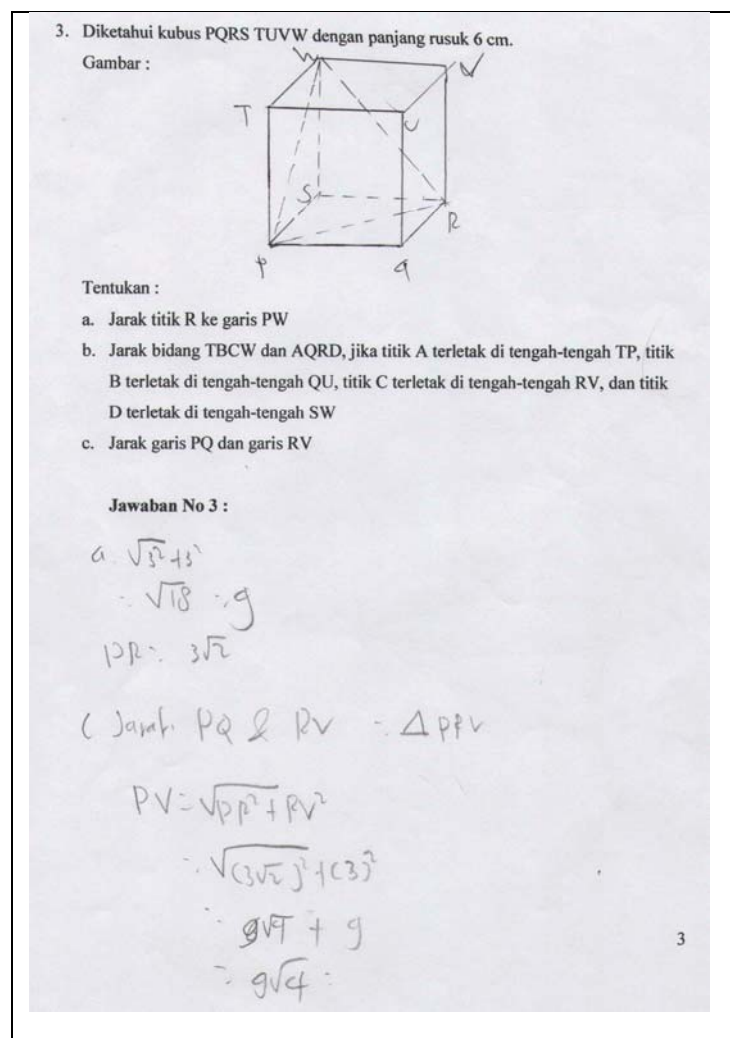 3. Diketahui kubus PQRS TUVW dengan panjang rusuk 6 cm.
Gambar :
W V
T U
S R
P Q
Tentukan :
a. Jarak titik R ke garis PW
b. Jarak bidang TBCW dan AQRD, jika titik A terletak di tengah-tengah TP, titik
B terletak di tengah-tengah QU, titik C terletak di tengah-tengah RV, dan titik
D terletak di tengah-tengah SW
c. Jarak garis PQ dan garis RV
Jawaban No 3 :
a. √3²+3²
= √18 = 9
PR = 3√2
C Jarak PQ & RV = Δ PRV
PV = √PR² + RV²
= √(3√2)² + (3)²
= 9√4 + 9
= 9√4 =
3